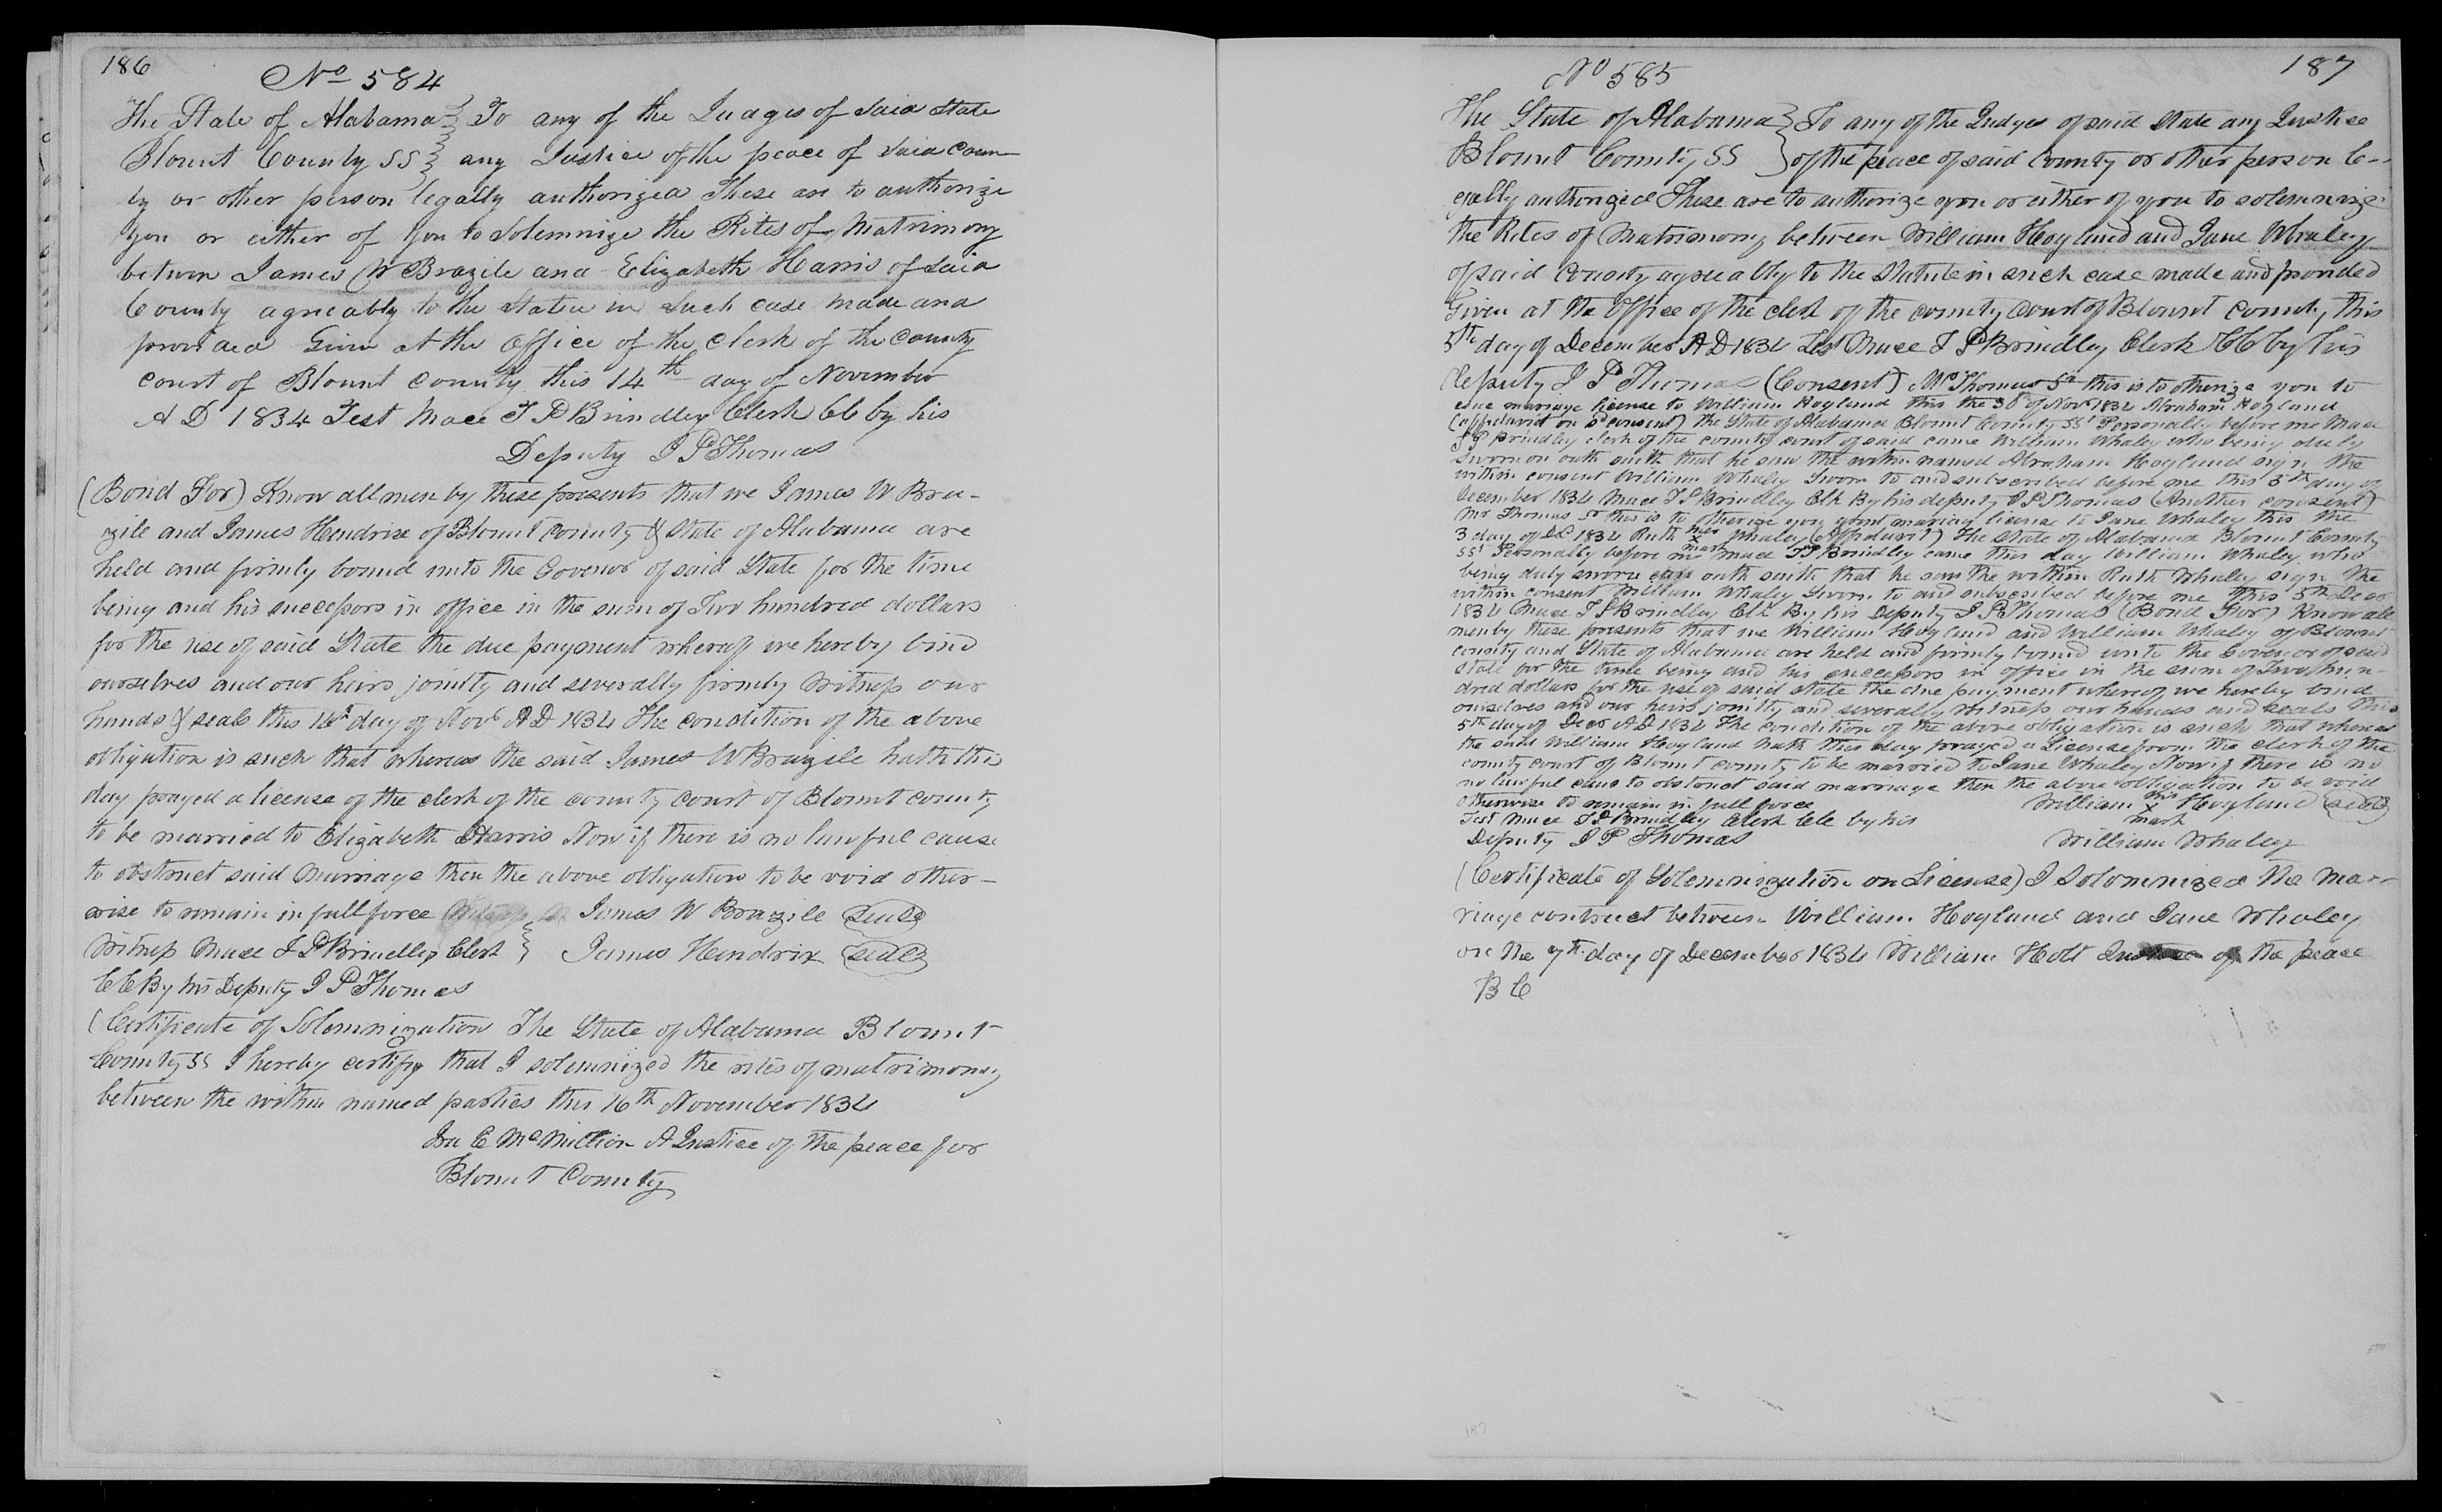 186
No 584
The State of Alabama } To any of the Judges of said State
Blount County SS } any Justice of the peace of said Coun-
ty or other person legally authorized These are to authorize
you or either of you to Solemnize the Rites of Matrimony
betwen James W Brazile and Elizabeth Harris of said
County agreeably to the Statue in such case made and
provided Given at the Office of the Clerk of the County
Court of Blount County this 14th day of November
A D 1834 Test Mace T P Brindley Clerk CC by his
Deputy J P Thomas
(Bond For) Know all men by these presents that we James W Bra-
zile and James Hendrix of Blount County & State of Alabama are
held and firmly bound unto the Govenor of said State for the time
being and his successors in office in the sum of Two hundred dollars
for the use of said State the due payment whereof we hereby bind
ourselves and our heirs jointly and severally firmly Witness our
hands & seals this 14th day of Novr A D 1834 The condition of the above
obligation is such that whereas the said James W Brazile hath this
day prayed a license of the clerk of the county court of Blount county
to be married to Elizabeth Harris Now if there is no lawful cause
to obstruct said Marriage then the above obligation to be void other-
wise to remain in full force James W Brazile seal
Witness Mace T P Brindley Clerk } James Hendrix seal
CC By his Deputy J P Thomas
(Certificate of Solemnization The State of Alabama Blount
County SS I hereby certify that I solemnized the rites of matrimony
between the within named parties this 16th November 1834
Ira E McMillion A Justice of the peace for
Blount County
187
No 585
The State of Alabama } To any of the Judges of said State any Justice
Blount County SS } of the peace of said County or other person le-
gally authorized These are to authorize you or either of you to solemnize
the Rites of Matrimony between William Hoyland and Jane Whaley
of said County agreeably to the Statute in such case made and provided
Given at the Office of the clerk of the county court of Blount County this
5th day of December A D 1834 Test Mace T P Brindley Clerk CC by his
Deputy J P Thomas (Consent) Mr Thomas Sr this is to otherize you to
esue mariage license to William Hoyland this the 30 of Novr 1834 Abraham Hoyland
(Affidavid on sd consent) The State of Alabama Blount County SSt Personally before me Mace
T P Brindley clerk of the county court of said came William Whaley who being duly
sworn on oath saith that he saw the within named Abraham Hoyland sign the
within consent William Whaley Sworn to and subscribed before me this 5th day of
December 1834 Mace T P Brindley Clk By his deputy J P Thomas (Another consent)
Mr Thomas Sr this is to otherize you grant mariag license to Jane Whaley this the
3 day of Dc 1834 Ruth her x mark Whaley (Affidavit) The State of Alabama Blount County
SSt Personally before me Mace T P Brindley came this day William Whaley who
being duly sworn oath saith that he saw the within Ruth Whaley sign the
within consent William Whaley Sworn to and subscribed before me this 5th Decr
1834 Mace T P Brindley Clk By his Deputy J P Thomas (Bond For) Know all
men by these presents that we William Hoyland and William Whaley of Blount
county and State of Alabama are held and firmly bound unto the Govenor of said
State for the time being and his successors in office in the sum of Two hun-
dred dollars for the use of said state the due payment whereof we hereby bind
ourselves and our heirs jointly and severally witness our hands and seals this
5th day of Decr A D 1834 The condition of the above obligation is such that whereas
the said William Hoyland hath this day prayed a License from the clerk of the
county court of Blount county to be married to Jane Whaley Now if there is no
no lawful caus to obstruct said marriage then the above obligation to be void
otherwise to remain in full force William his x mark Hoyland seal
Test Mace T P Brindley Clerk CC by his
Deputy J P Thomas William Whaley
(Certificate of Solemnization on License) I Solomnized the Mar-
riage contract between William Hoyland and Jane Whaley
on the 7th day of December 1834 William Holt Justice of the peace
B C
187